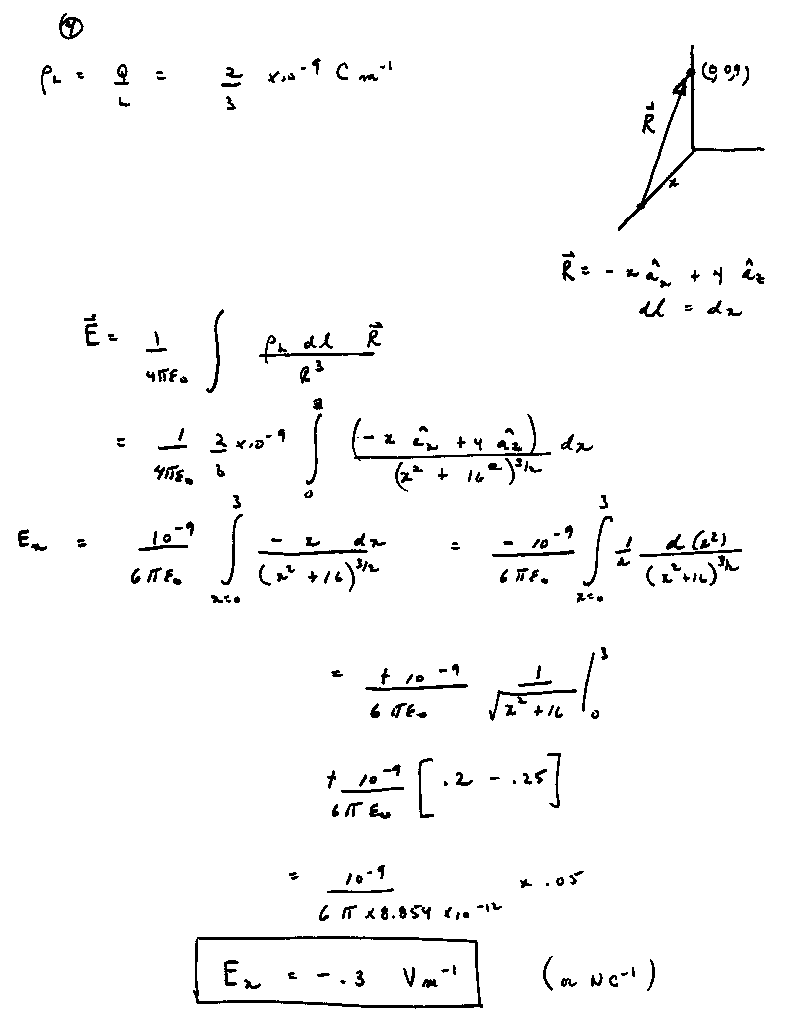 ④
ρ_L = Q/L = 2/3 x10⁻⁹ C m⁻¹
(0,0,4)
R⃗
x
R⃗ = - x â_x + 4 â_z
dl = dx
E⃗ = 1/(4πε₀) ∫ ρ_L dl R⃗ / R³
= 1/(4πε₀) 2/3 x10⁻⁹ ∫₀³ (- x â_x + 4 â_z) / (x² + 16)^(3/2) dx
E_x = 10⁻⁹/(6πε₀) ∫_{x=0}^{3} - x dx / (x² + 16)^(3/2) = - 10⁻⁹/(6πε₀) ∫_{x=0}^{3} 1/2 d(x²) / (x² + 16)^(3/2)
= + 10⁻⁹/(6πε₀) 1/√(x² + 16) |₀³
+ 10⁻⁹/(6πε₀) [.2 - .25]
= 10⁻⁹/(6π x 8.854 x10⁻¹²) x .05
E_x = -.3 V m⁻¹ (or N C⁻¹)